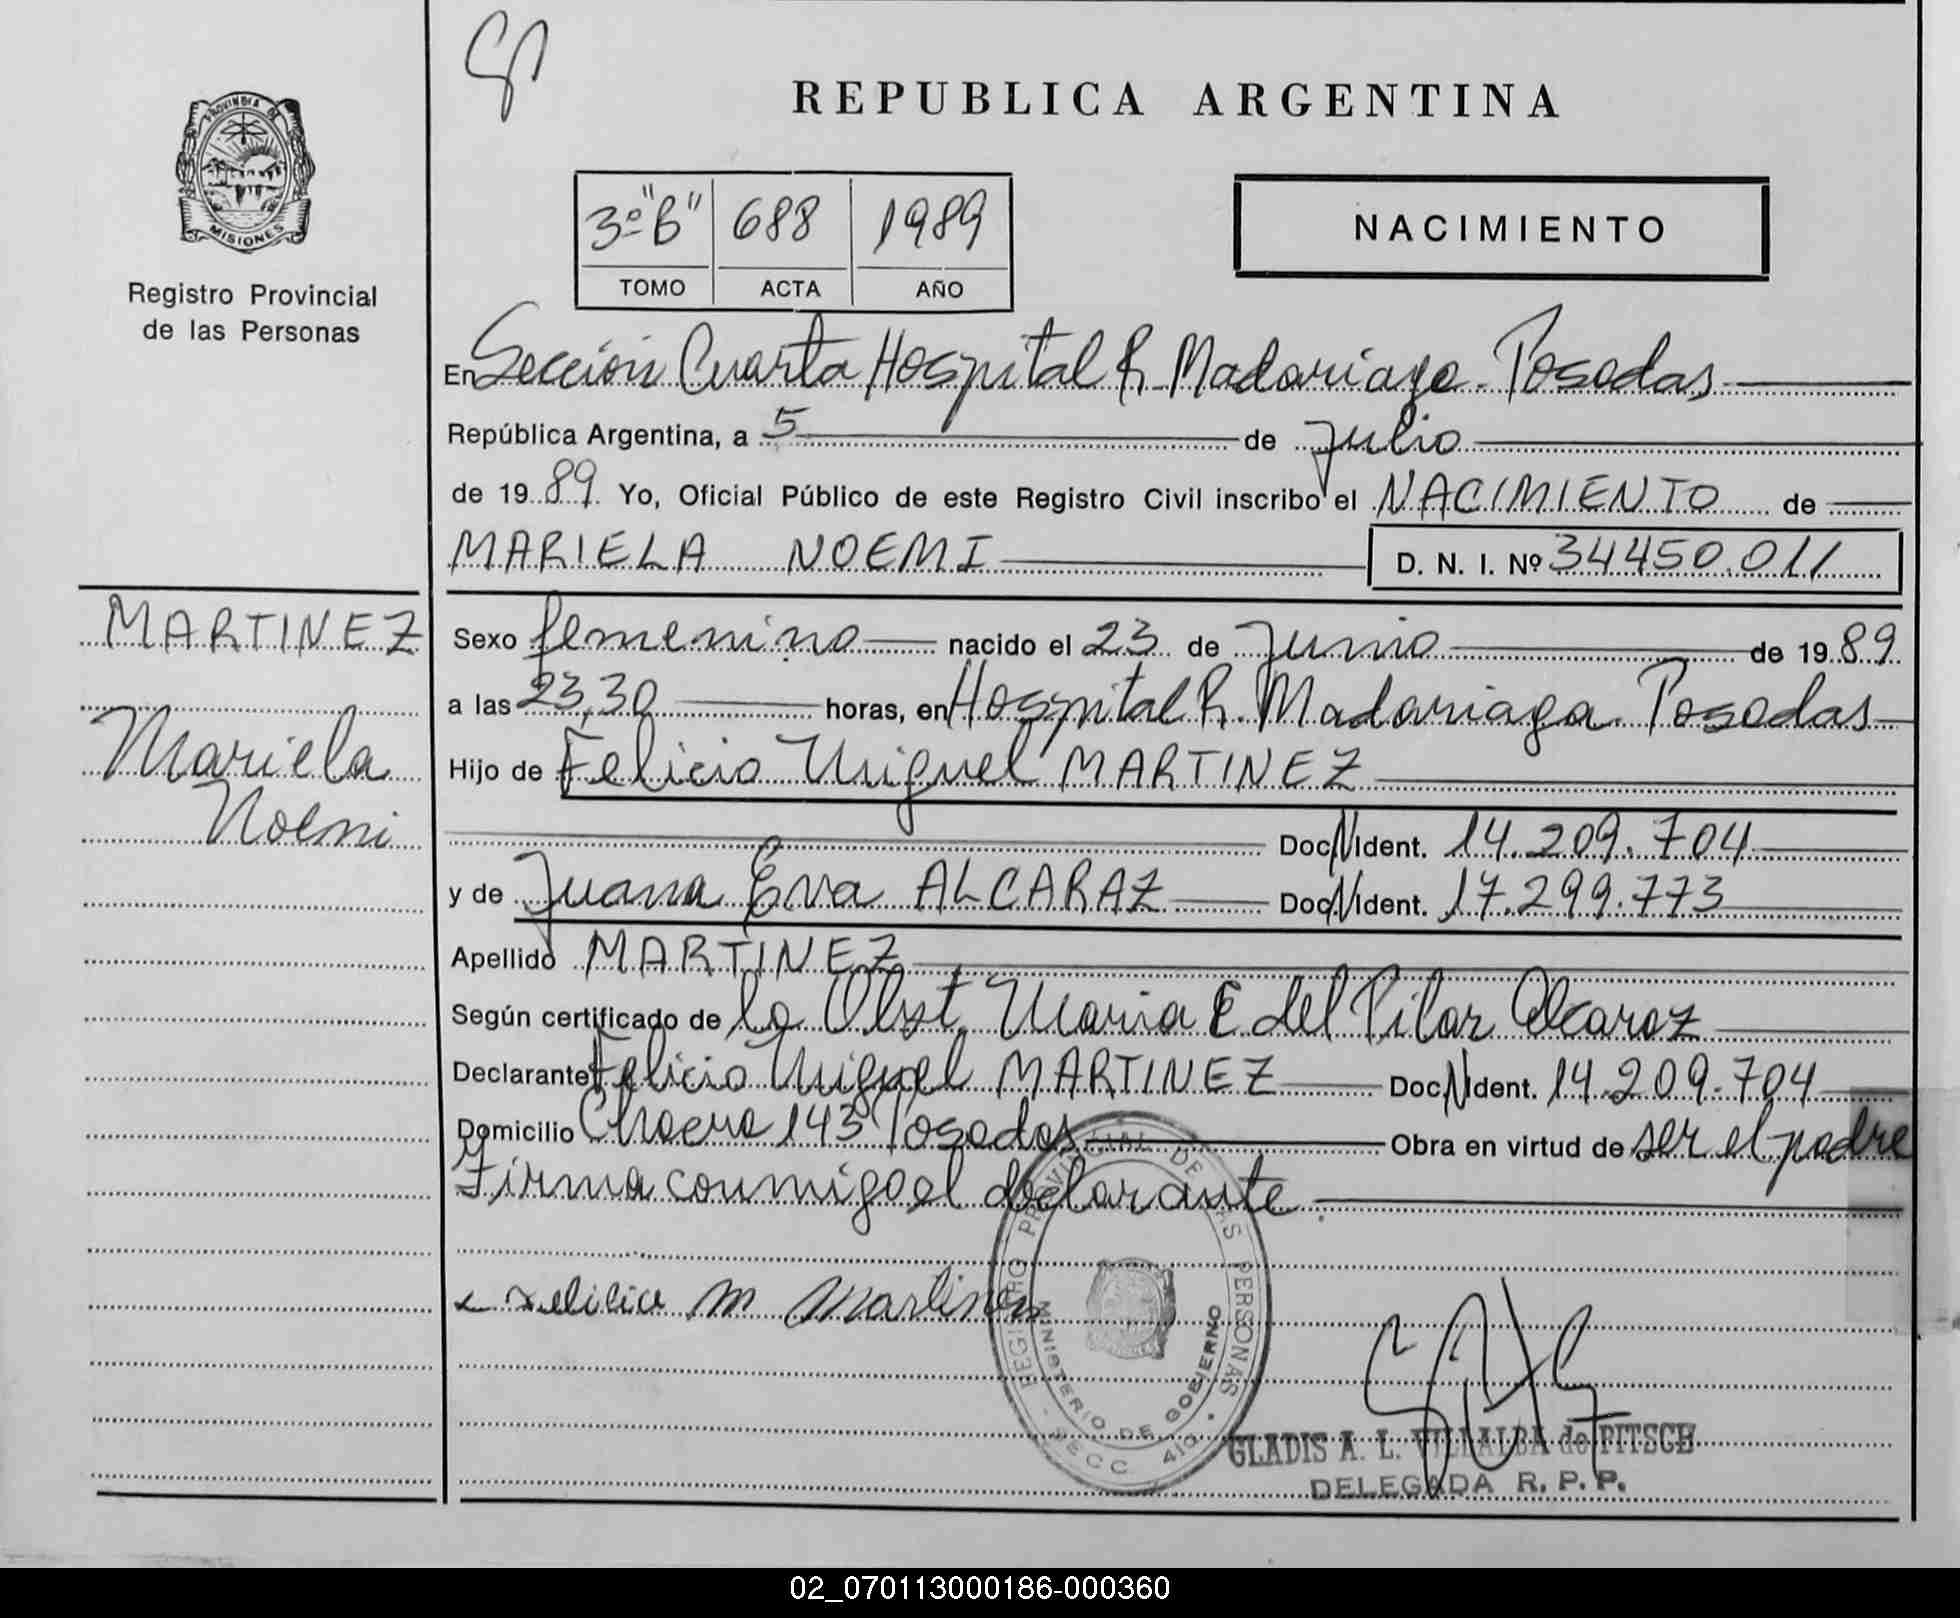 REPUBLICA ARGENTINA
PROVINCIA DE
MISIONES
Registro Provincial
de las Personas
3º "B" 688 1989
TOMO ACTA AÑO
NACIMIENTO
En Sección Cuarta Hospital R. Madariaga - Posadas
República Argentina, a 5 de Julio
de 19 89 Yo, Oficial Público de este Registro Civil inscribo el NACIMIENTO de
MARIELA NOEMI D. N. I. Nº 34450.011
MARTINEZ
Mariela
Noemi
Sexo femenino nacido el 23 de Junio de 19 89
a las 23,30 horas, en Hospital R. Madariaga. Posadas
Hijo de Felicio Miguel MARTINEZ
Doc. N Ident. 14.209.704
y de Juana Eva ALCARAZ Doc. N Ident. 17.299.773
Apellido MARTINEZ
Según certificado de la Obst. Maria E. del Pilar Alcaraz
Declarante Felicio Miguel MARTINEZ Doc. N Ident. 14.209.704
Domicilio Chacra 143 Posadas Obra en virtud de ser el padre
Firma conmigo el declarante.
x Felicio M Martinez
REGISTRO PROVINCIAL DE LAS PERSONAS
MINISTERIO DE GOBIERNO
SECC 4ta
GLADIS A. L. VILLALBA de PITSCH
DELEGADA R. P. P.
02_070113000186-000360